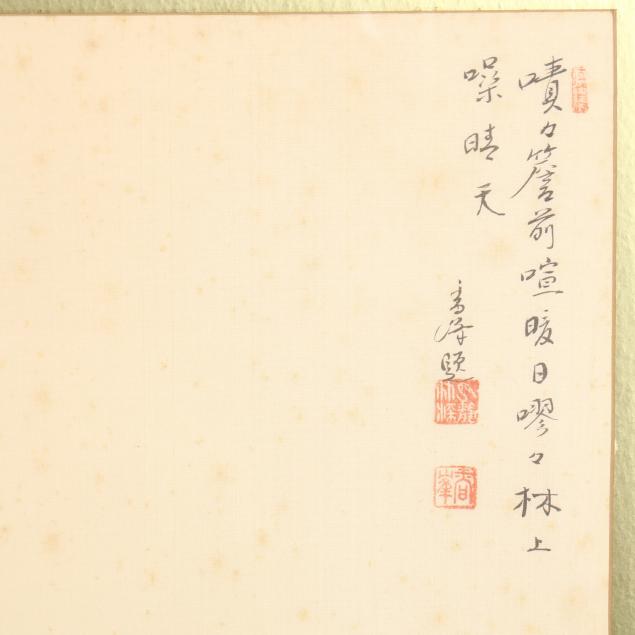 嘖々簷前喧暖日嘐々林上
噪晴天
香峰題
香峰